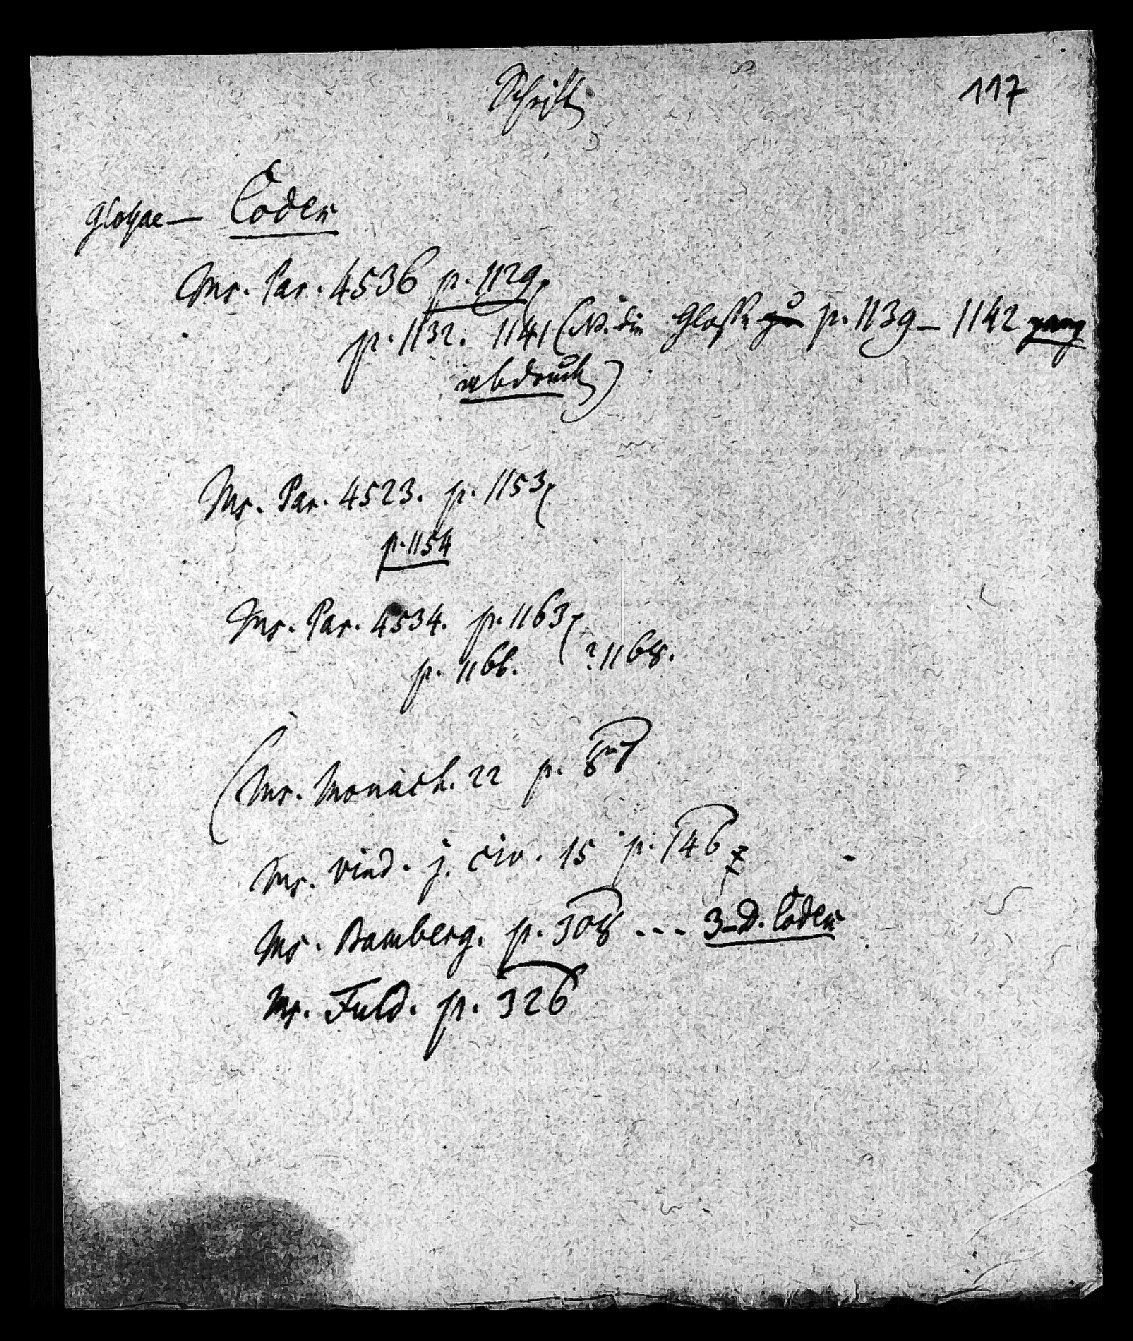 Schrift
117
Glossae — Codex
Ms. Par. 4536 p. 1129,
p. 1132. 1141 (NB. die Glosse zu p. 1139 — 1142 ganz
abdruck)
Ms. Par. 4523. p. 1153,
p. 1154
Ms. Par. 4534. p. 1163,
p. 1166. ? 1168.
(Ms. Monach. 22 p. 87
Ms. Vind. j. civ. 15 p. 146
Ms. Bamberg. p. 308 ... 3–D. Codex
Ms. Fuld. p. 326